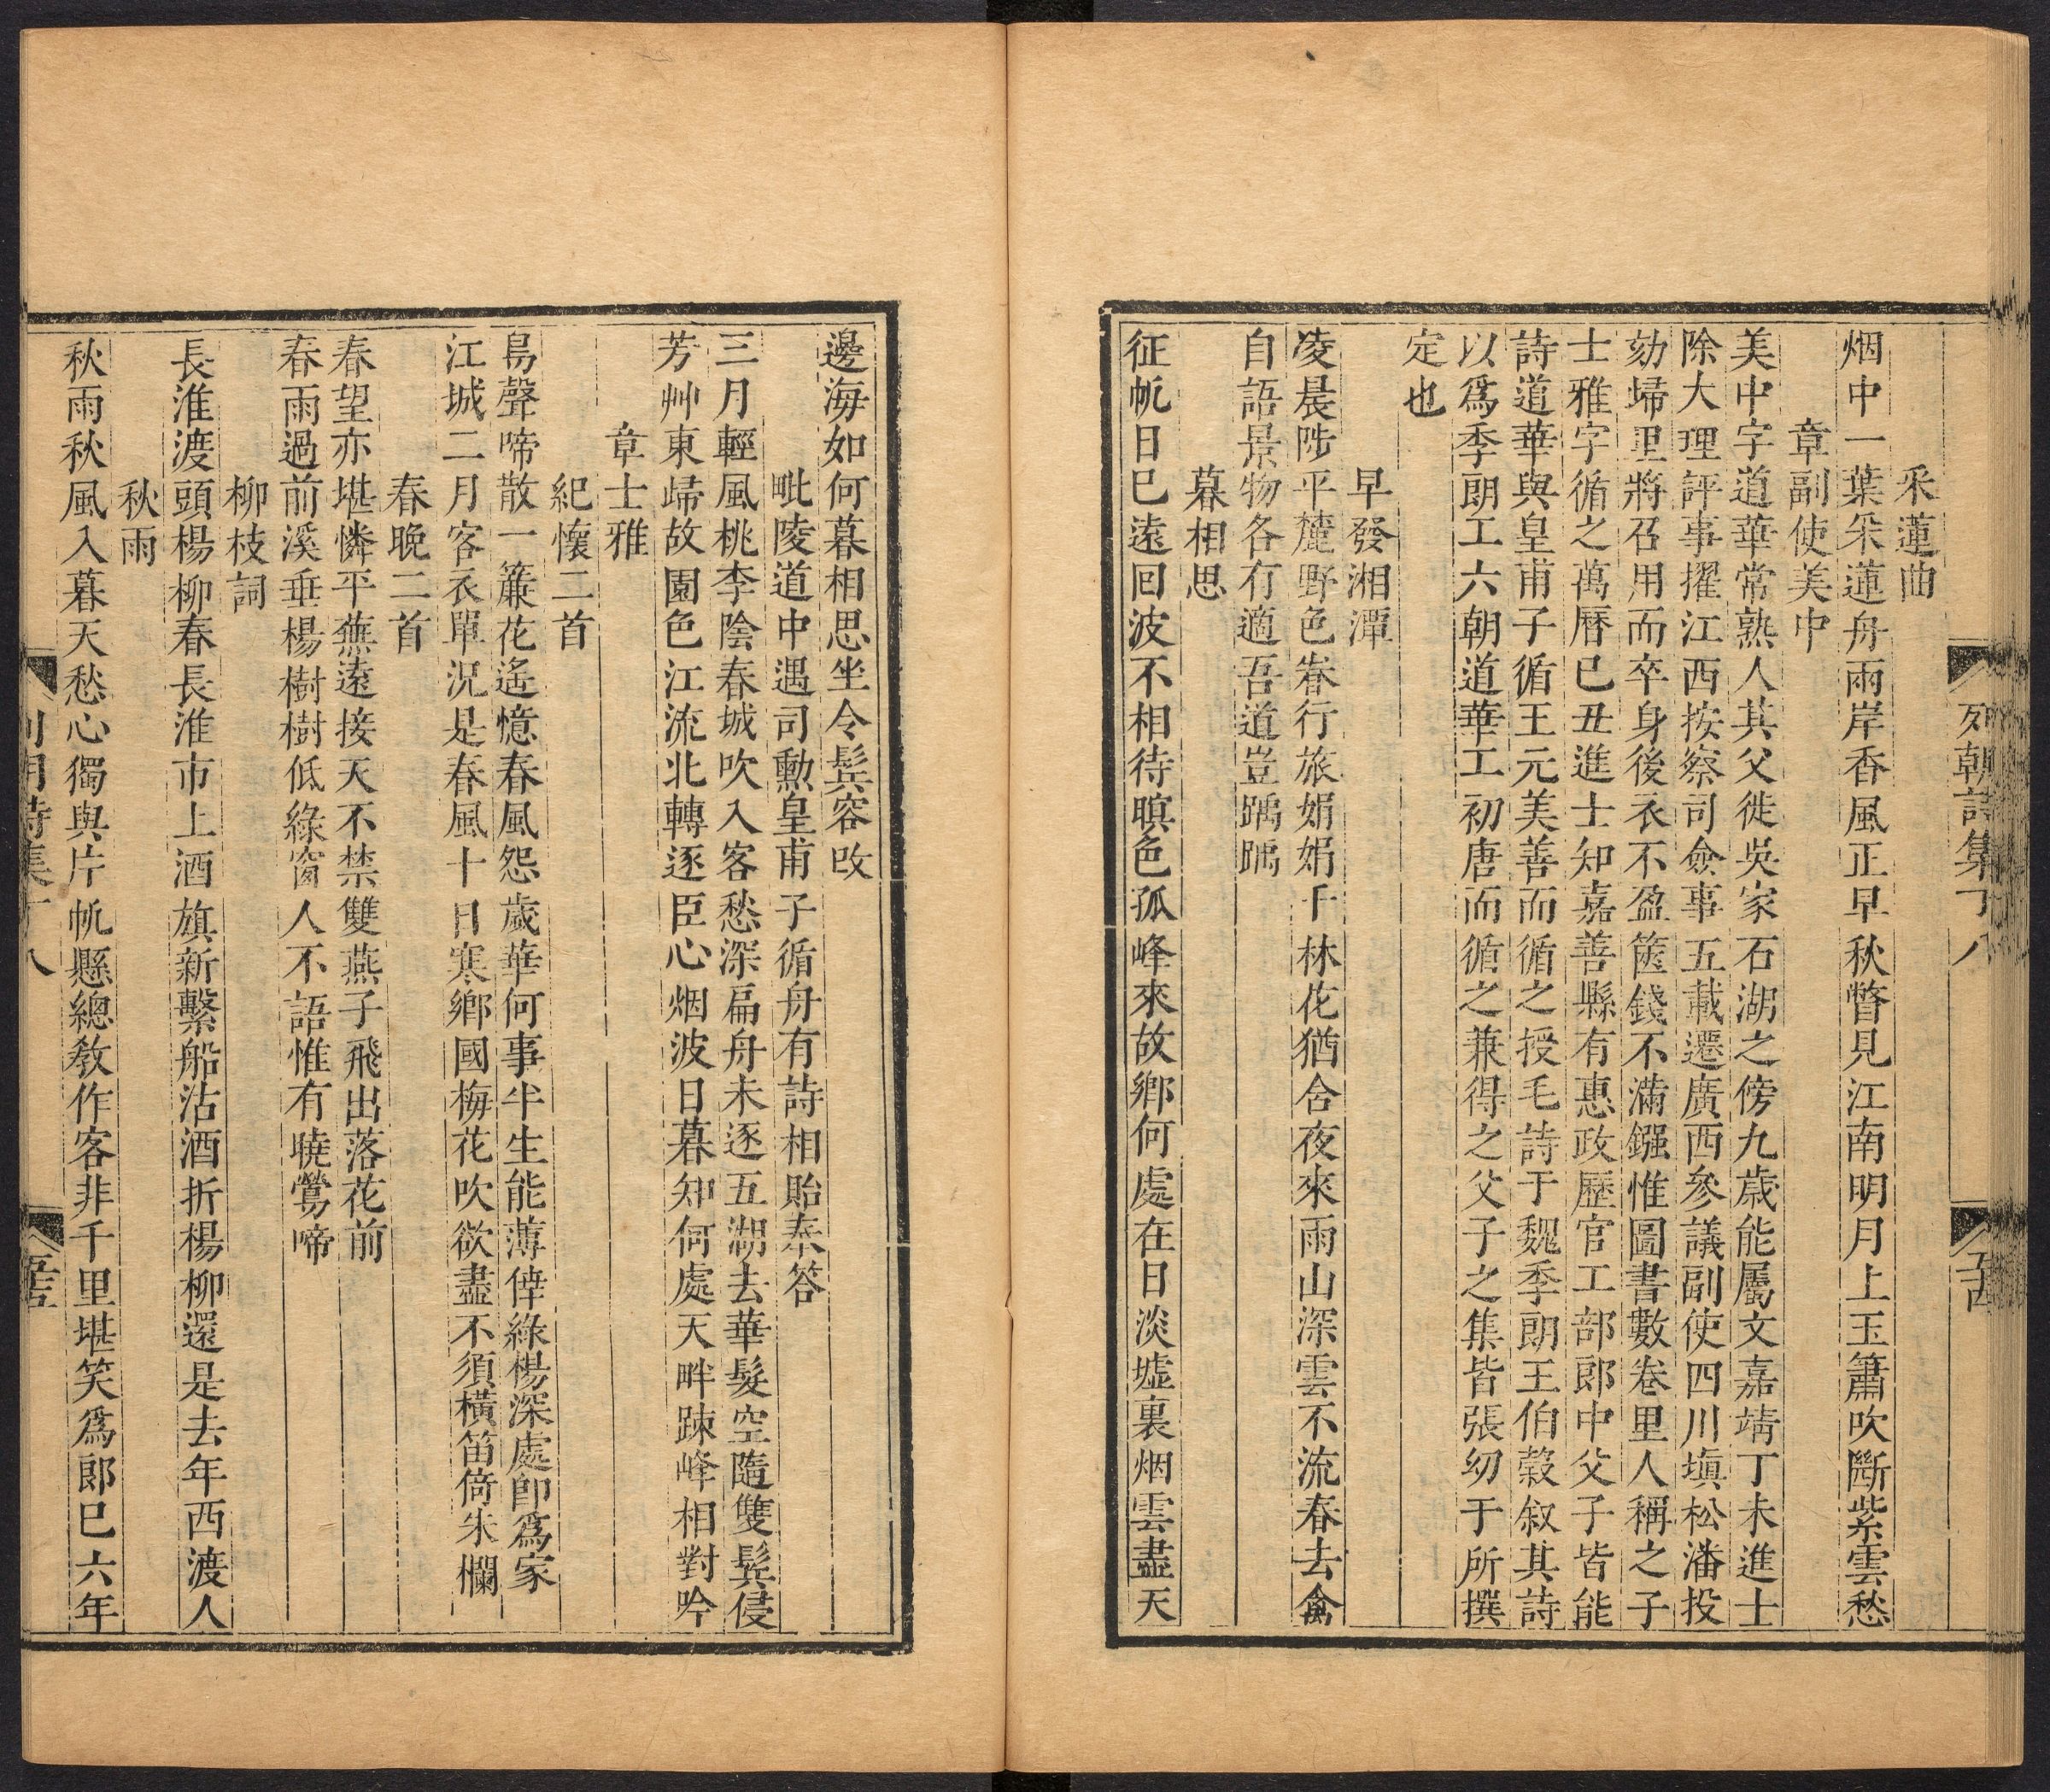 列朝詩集丁八
采蓮曲
烟中一葉采蓮舟兩岸香風正早秋瞥見江南明月上玉簫吹斷紫雲愁
章副使美中
美中字道華常熟人其父徙吳家石湖之傍九歲能屬文嘉靖丁未進士
除大理評事擢江西按察司僉事五載遷廣西參議副使四川塡松潘投
劾歸里將召用而卒身後衣不盈篋錢不滿鏹惟圖書數卷里人稱之子
士雅字循之萬曆巳丑進士知嘉善縣有惠政歷官工部郎中父子皆能
詩道華與皇甫子循王元美善而循之授毛詩于魏季朗王伯穀叙其詩
以爲季朗工六朝道華工初唐而循之兼得之父子之集皆張幼于所撰
定也
早發湘潭
凌晨陟平麓野色眷行旅娟娟千林花猶含夜來雨山深雲不流春去禽
自語景物各有適吾道豈踽踽
暮相思
征帆日巳遠回波不相待暝色孤峰來故鄉何處在日淡墟裏烟雲盡天
邊海如何暮相思坐令鬂容改
毗陵道中遇司勳皇甫子循舟有詩相貽奉答
三月輕風桃李陰春城吹入客愁深扁舟未逐五湖去華髮空隨雙鬂侵
芳艸東歸故園色江流北轉逐臣心烟波日暮知何處天畔踈峰相對吟
章士雅
紀懷二首
鳥聲啼散一簾花遙憶春風怨歲華何事半生能薄倖綠楊深處卽爲家
江城二月客衣單況是春風十日寒鄉國梅花吹欲盡不須橫笛倚朱欄
春晚二首
春望亦堪憐平蕪遠接天不禁雙燕子飛出落花前
春雨過前溪垂楊樹樹低綠窗人不語惟有曉鶯啼
柳枝詞
長淮渡頭楊柳春長淮市上酒旗新繫船沽酒折楊柳還是去年西渡人
秋雨
秋雨秋風入暮天愁心獨與片帆懸總敎作客非千里堪笑爲郎巳六年